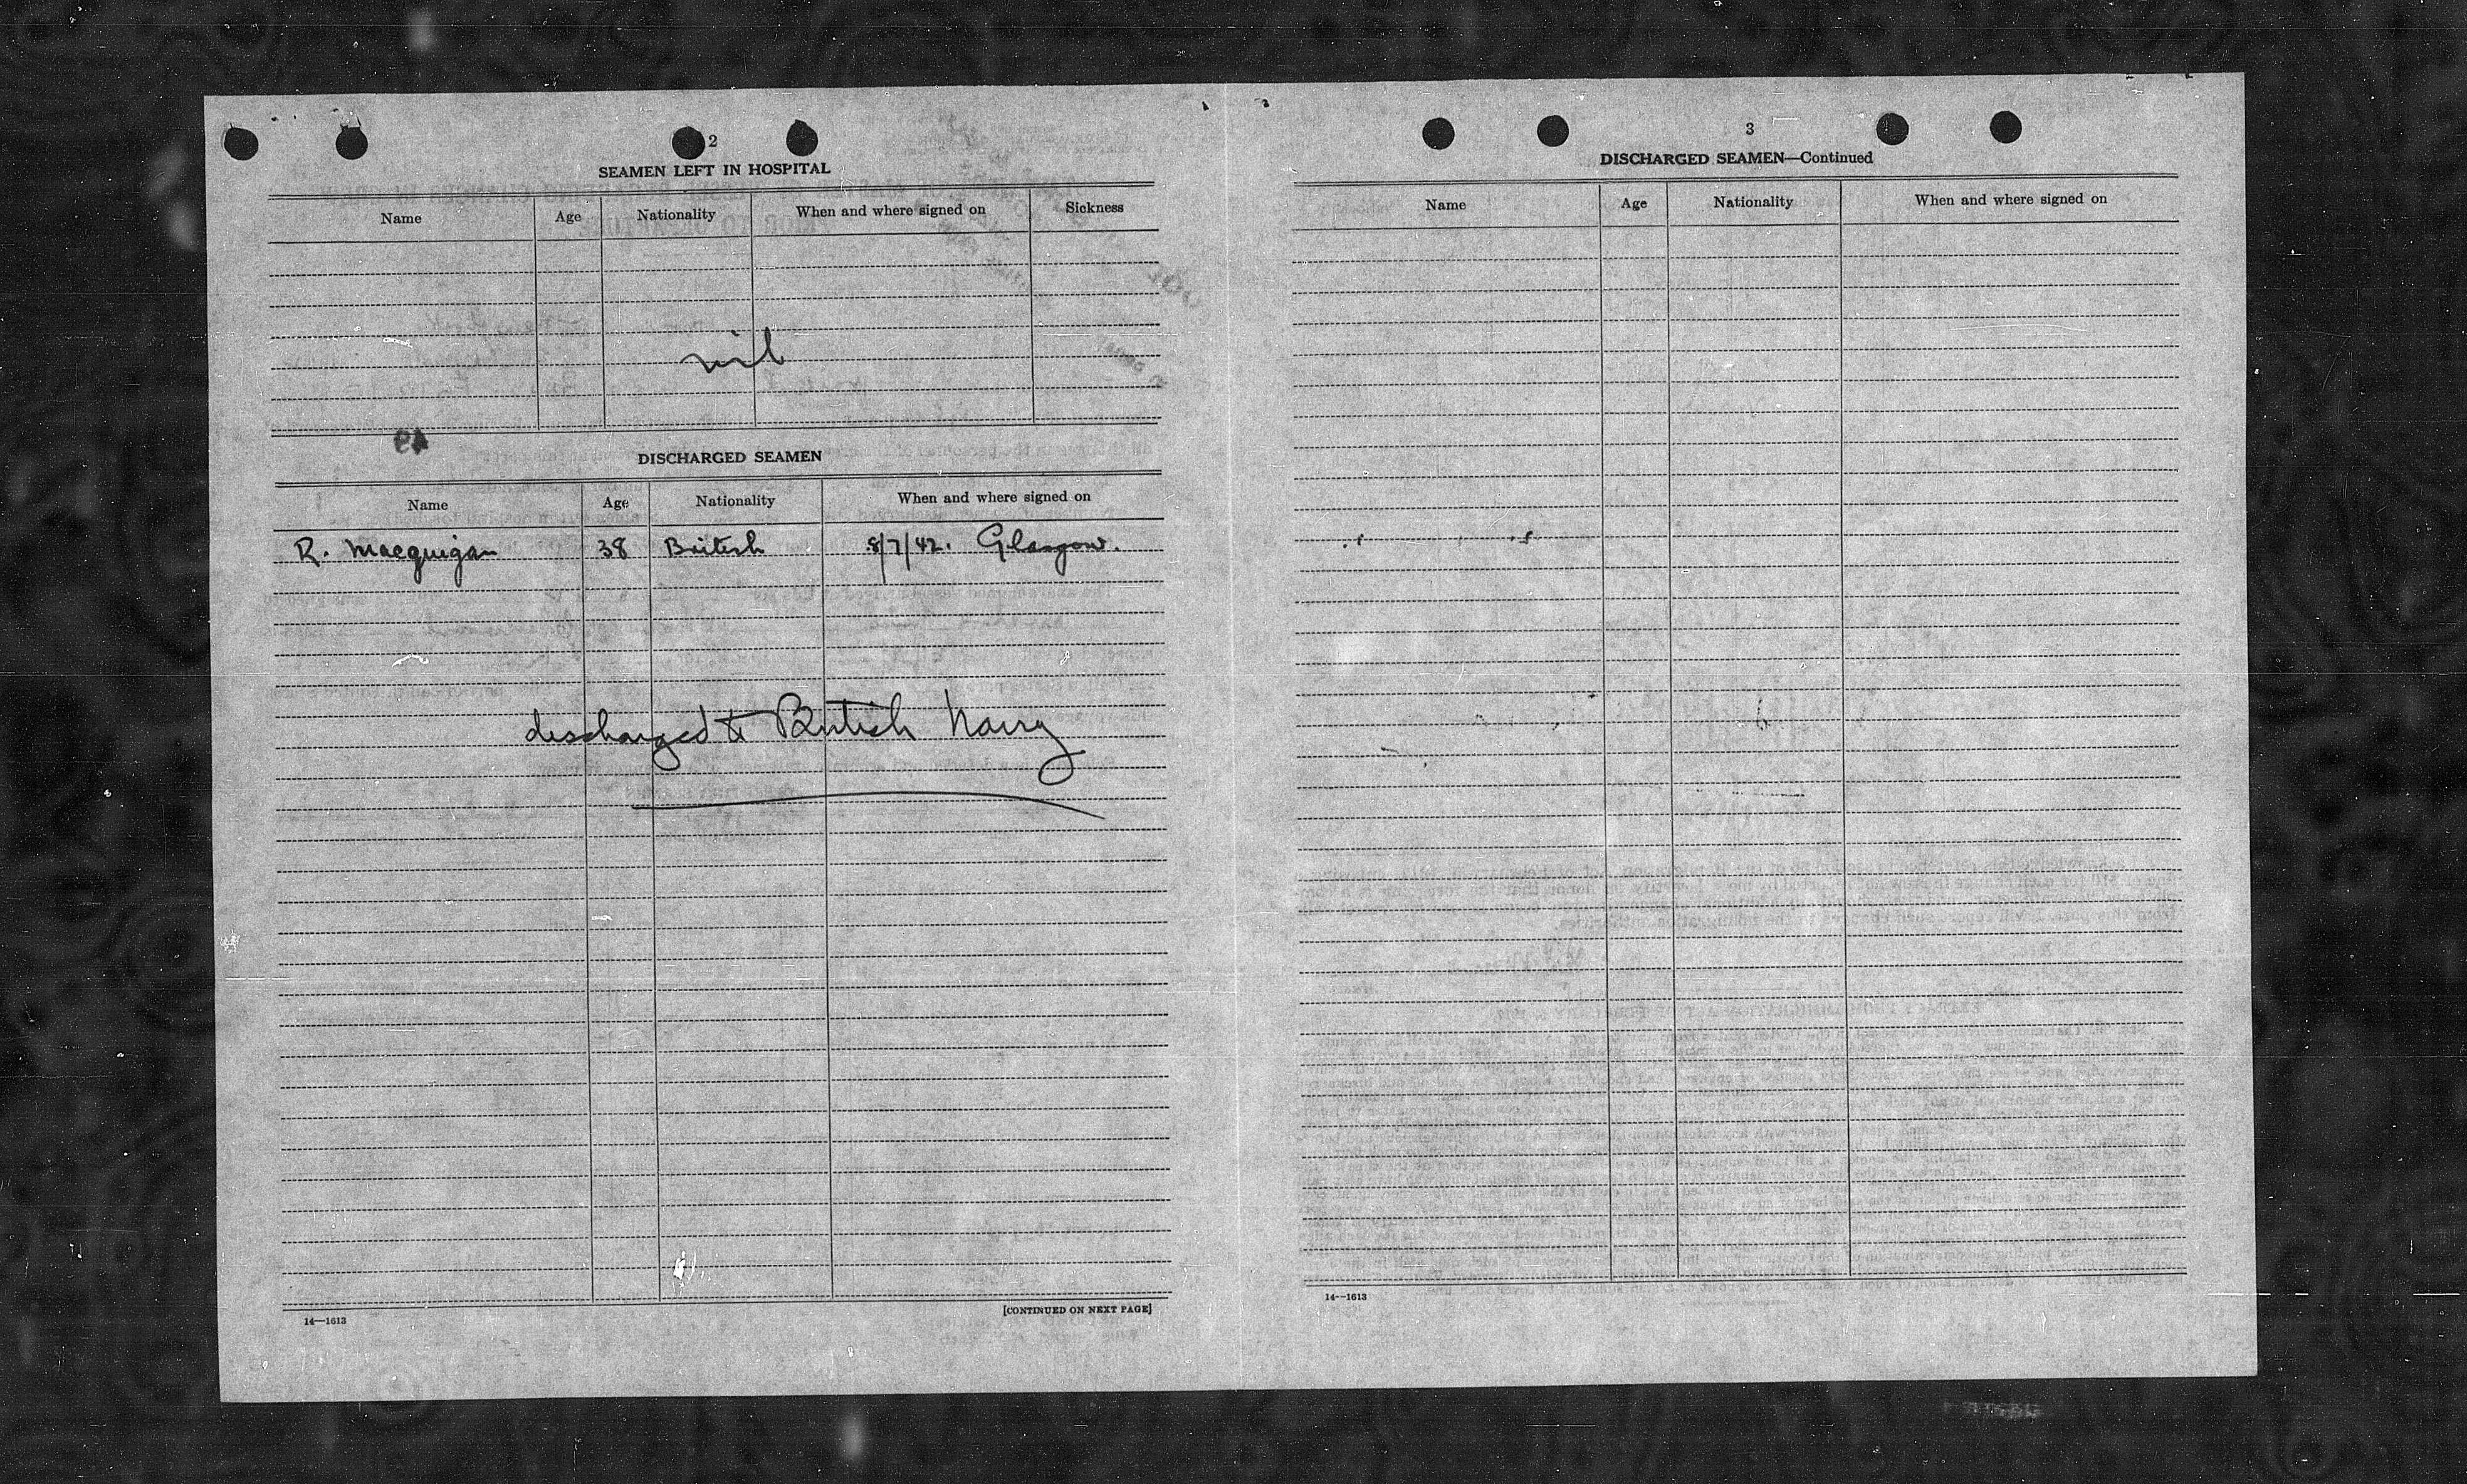 2
SEAMEN LEFT IN HOSPITAL
Name Age Nationality When and where signed on Sickness
nil
DISCHARGED SEAMEN
Name Age Nationality When and where signed on
R. Macguigan 38 British 8/7/42. Glasgow.
discharged to British Navy
14—1613
[CONTINUED ON NEXT PAGE]
3
DISCHARGED SEAMEN—Continued
Name Age Nationality When and where signed on
14—1613